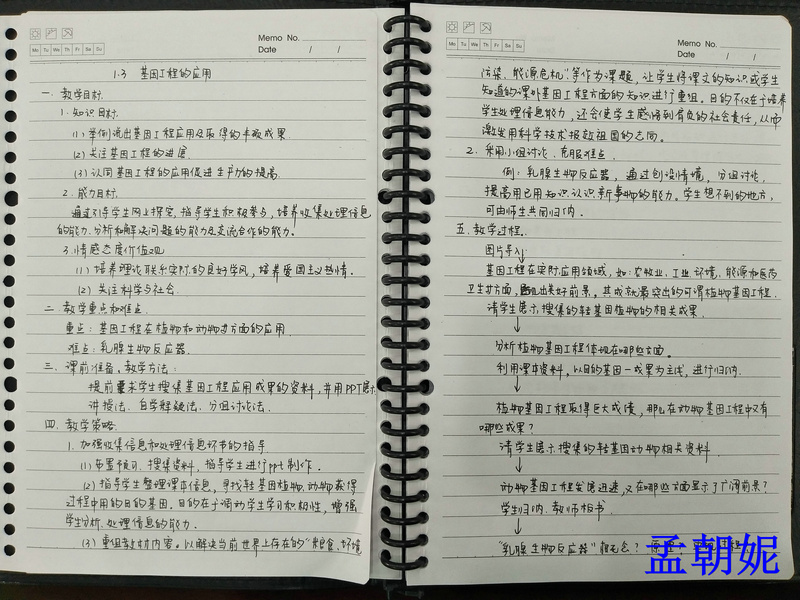 Memo No.
Mo Tu We Th Fr Sa Su
Date / /
1.3 基因工程的应用
一. 教学目标
1. 知识目标
(1) 举例说出基因工程应用及取得的丰硕成果
(2) 关注基因工程的进展
(3) 认同基因工程的应用促进生产力的提高
2. 能力目标
通过引导学生网上探究, 指导学生积极参与, 培养收集处理信息
的能力、分析和解决问题的能力及交流合作的能力。
3. 情感态度价值观
(1) 培养理论联系实际的良好学风, 培养爱国主义热情。
(2) 关注科学与社会
二. 教学重点和难点
重点: 基因工程在植物和动物方面的应用
难点: 乳腺生物反应器
三. 课前准备、教学方法:
提前要求学生搜集基因工程应用成果的资料, 并用PPT展示
讲授法、自学释疑法、分组讨论法.
四. 教学策略
1. 加强收集信息和处理信息的指导
(1) 布置预习, 搜集资料, 指导学生进行ppt制作.
(2) 指导学生整理课本信息, 寻找转基因植物、动物获得
过程中用的目的基因, 目的在于调动学生学习积极性, 增强
学生分析、处理信息的能力.
(3) 重组教材内容。以解决当前世界上存在的“粮食、环境
Memo No.
Mo Tu We Th Fr Sa Su
Date / /
污染、能源危机”等作为课题, 让学生将课文的知识或学生
知道的课外基因工程方面的知识进行重组。目的不仅在于培养
学生处理信息能力, 还会使学生感悟到肩负的社会责任, 从而
激发用科学技术报效祖国的志向。
2. 采用小组讨论、克服难点.
例: 乳腺生物反应器, 通过创设情境, 分组讨论,
提高用已用知识认识新事物的能力。学生想不到的地方,
可由师生共同归纳。
五. 教学过程.
图片导入
基因工程在实际应用领域, 如: 农牧业、工业、环境、能源和医药
卫生方面, 出美好前景, 其成就最突出的可谓植物基因工程.
请学生展示搜集的转基因植物的相关成果.
分析植物基因工程体现在哪些方面.
利用课本资料, 以目的基因—成果为主线, 进行归纳.
植物基因工程取得巨大成绩, 那么在动物基因工程中又有
哪些成果?
请学生展示搜集的转基因动物相关资料
动物基因工程发展迅速, 又在哪些方面显示了广阔前景?
学生归纳、教师板书.
“乳腺生物反应器”概念?
孟朝妮